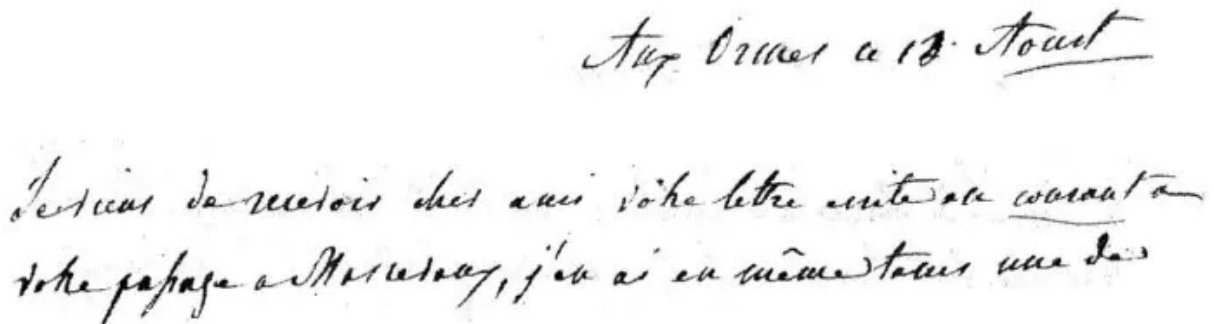 Aux Ormes ce 13. Aoust
Je viens de recevoir cher ami vôtre lettre écrite en courant a
votre passage a j'en ai en même tems une de